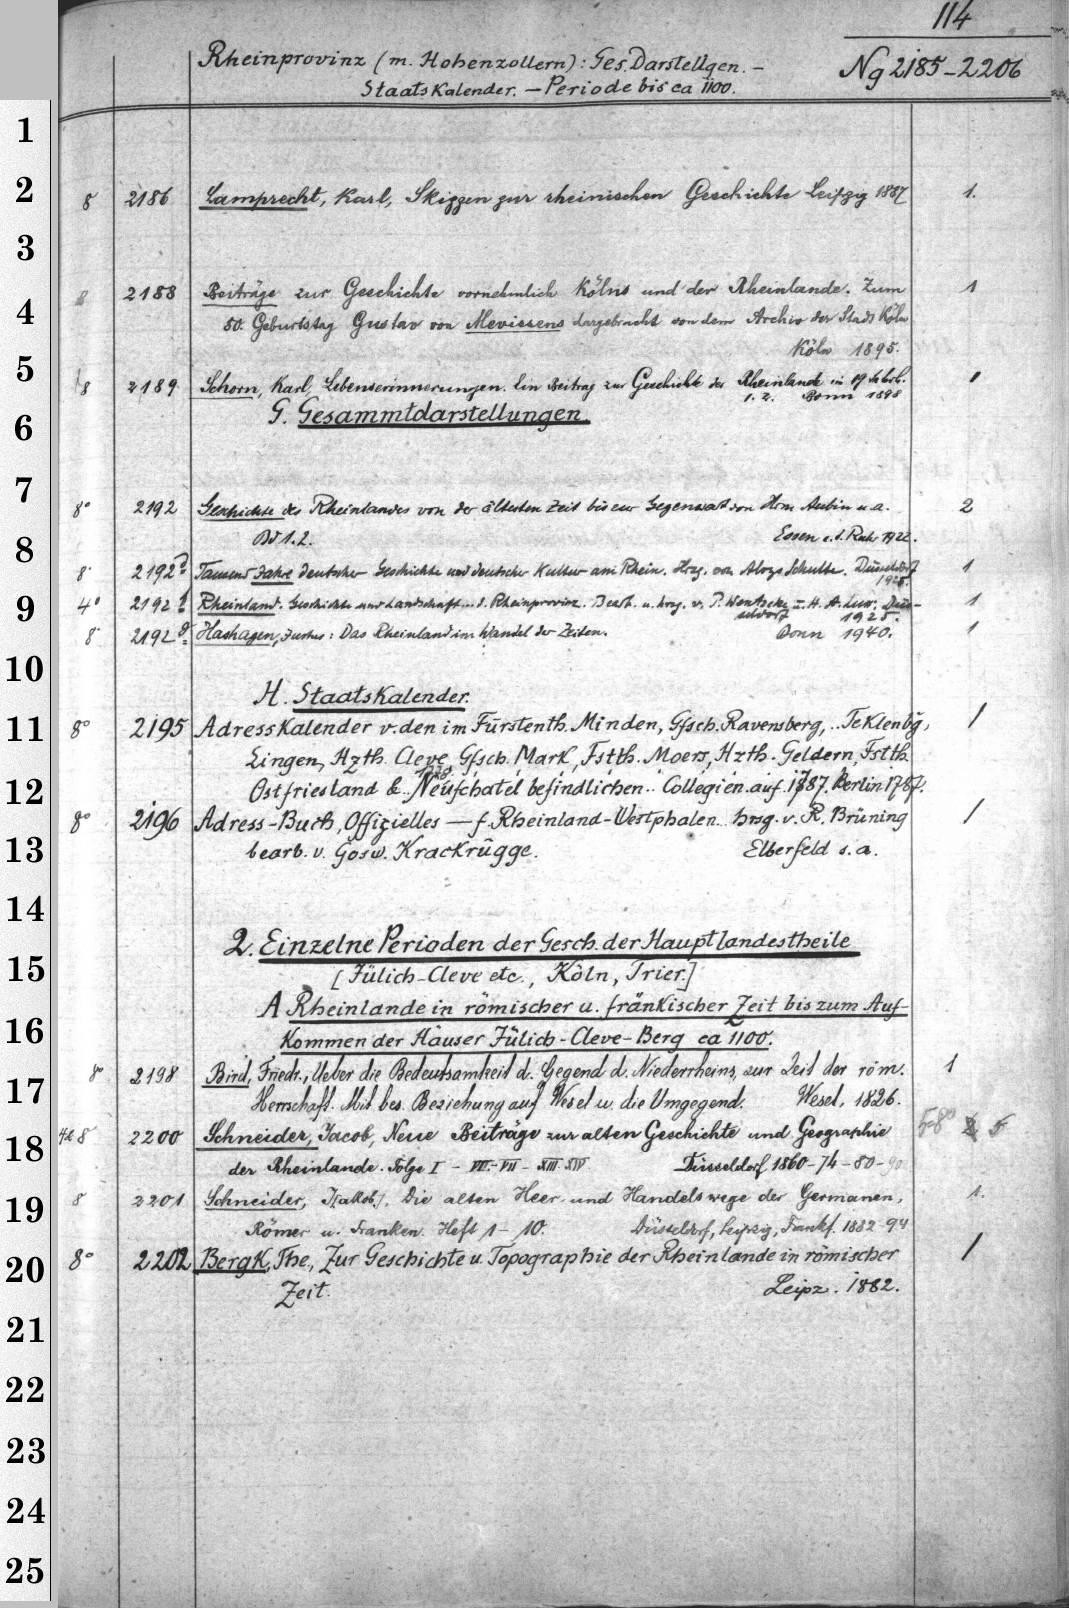 114
Rheinprovinz (m. Hohenzollern): Ges. Darstellgen. –
Ng 2185–2206
Staatskalender. – Periode bis ca 1100.
1
2
8 2186 Lamprecht, Karl, Skizzen zur rheinischen Geschichte Leipzig 1887 1.
3
8 2188 Beiträge zur Geschichte vornehmlich Kölns und der Rheinlande. Zum 1
4
80. Geburtstag Gustav von Mevissens dargebracht von dem Archiv der Stadt Köln
Köln 1895.
5
8 2189 Schorn, Karl, Lebenserinnerungen. Ein Beitrag zur Geschichte der Rheinlande im 19 Jahrh. 1
1. 2. Bonn 1898
G. Gesammtdarstellungen.
6
7
8° 2192 Geschichte des Rheinlandes von der ältesten Zeit bis zur Gegenwart von Herm Aubin u. a. 2
Bd 1. 2. Essen a. d. Ruhr 1922.
8
8° 2192 Tausend Jahre deutscher Geschichte und deutscher Kultur am Rhein. Hrg. von Aloys Schulte. Düsseldorf 1
1925.
9
4° 2192 f Rheinland. Geschichte und Landschaft... d. Rheinprovinz. Bearb. u. hrsg. v. P. Wentzcke u. H. A. Lux. Düs- 1
seldorf 1925.
8° 2192 g Hashagen, Justus: Das Rheinland im Wandel der Zeiten. Bonn 1940. 1
10
H. Staatskalender.
11
8° 2195 Adresskalender v. den im Fürstenth. Minden, Gfsch. Ravensberg, .. Teklenbg, 1
Lingen, Hzth. Cleve, Gfsch. Mark, Fstth. Moers, Hzth. Geldern, Fstth.
12
Ostfriesland &.. Neufchatel befindlichen.. Collegien. auf. 1787. Berlin 1787.
8° 2196 Adress-Buch, Offizielles — f. Rheinland-Westphalen.. hrsg. v. R. Brüning 1
13
bearb. v. Gosw. Krackrügge. Elberfeld s. a.
14
2. Einzelne Perioden der Gesch. der Hauptlandestheile
15
[Jülich-Cleve etc., Köln, Trier.]
A Rheinlande in römischer u. fränkischer Zeit bis zum Auf-
16
kommen der Häuser Jülich-Cleve-Berg ca 1100.
8° 2198 Bird, Friedr., Ueber die Bedeutsamkeit d. Gegend d. Niederrheins, zur Zeit der röm. 1
17
Herrschaft. Mit bes. Beziehung auf Wesel u. die Umgegend. Wesel, 1826.
18
4 & 8 2200 Schneider, Jacob, Neue Beiträge zur alten Geschichte und Geographie 5
der Rheinlande. Folge I – VI.–VII – XIII. XIV Düsseldorf 1860–74–80–90
19
8 2201 Schneider, J[akob], Die alten Heer- und Handelswege der Germanen, 1.
Römer u. Franken. Heft 1–10. Düsseldorf, Leipzig, Frankf. 1882–94
20
8° 2202 Bergk, The., Zur Geschichte u. Topographie der Rheinlande in römischer 1
Zeit. Leipz. 1882.
21
22
23
24
25